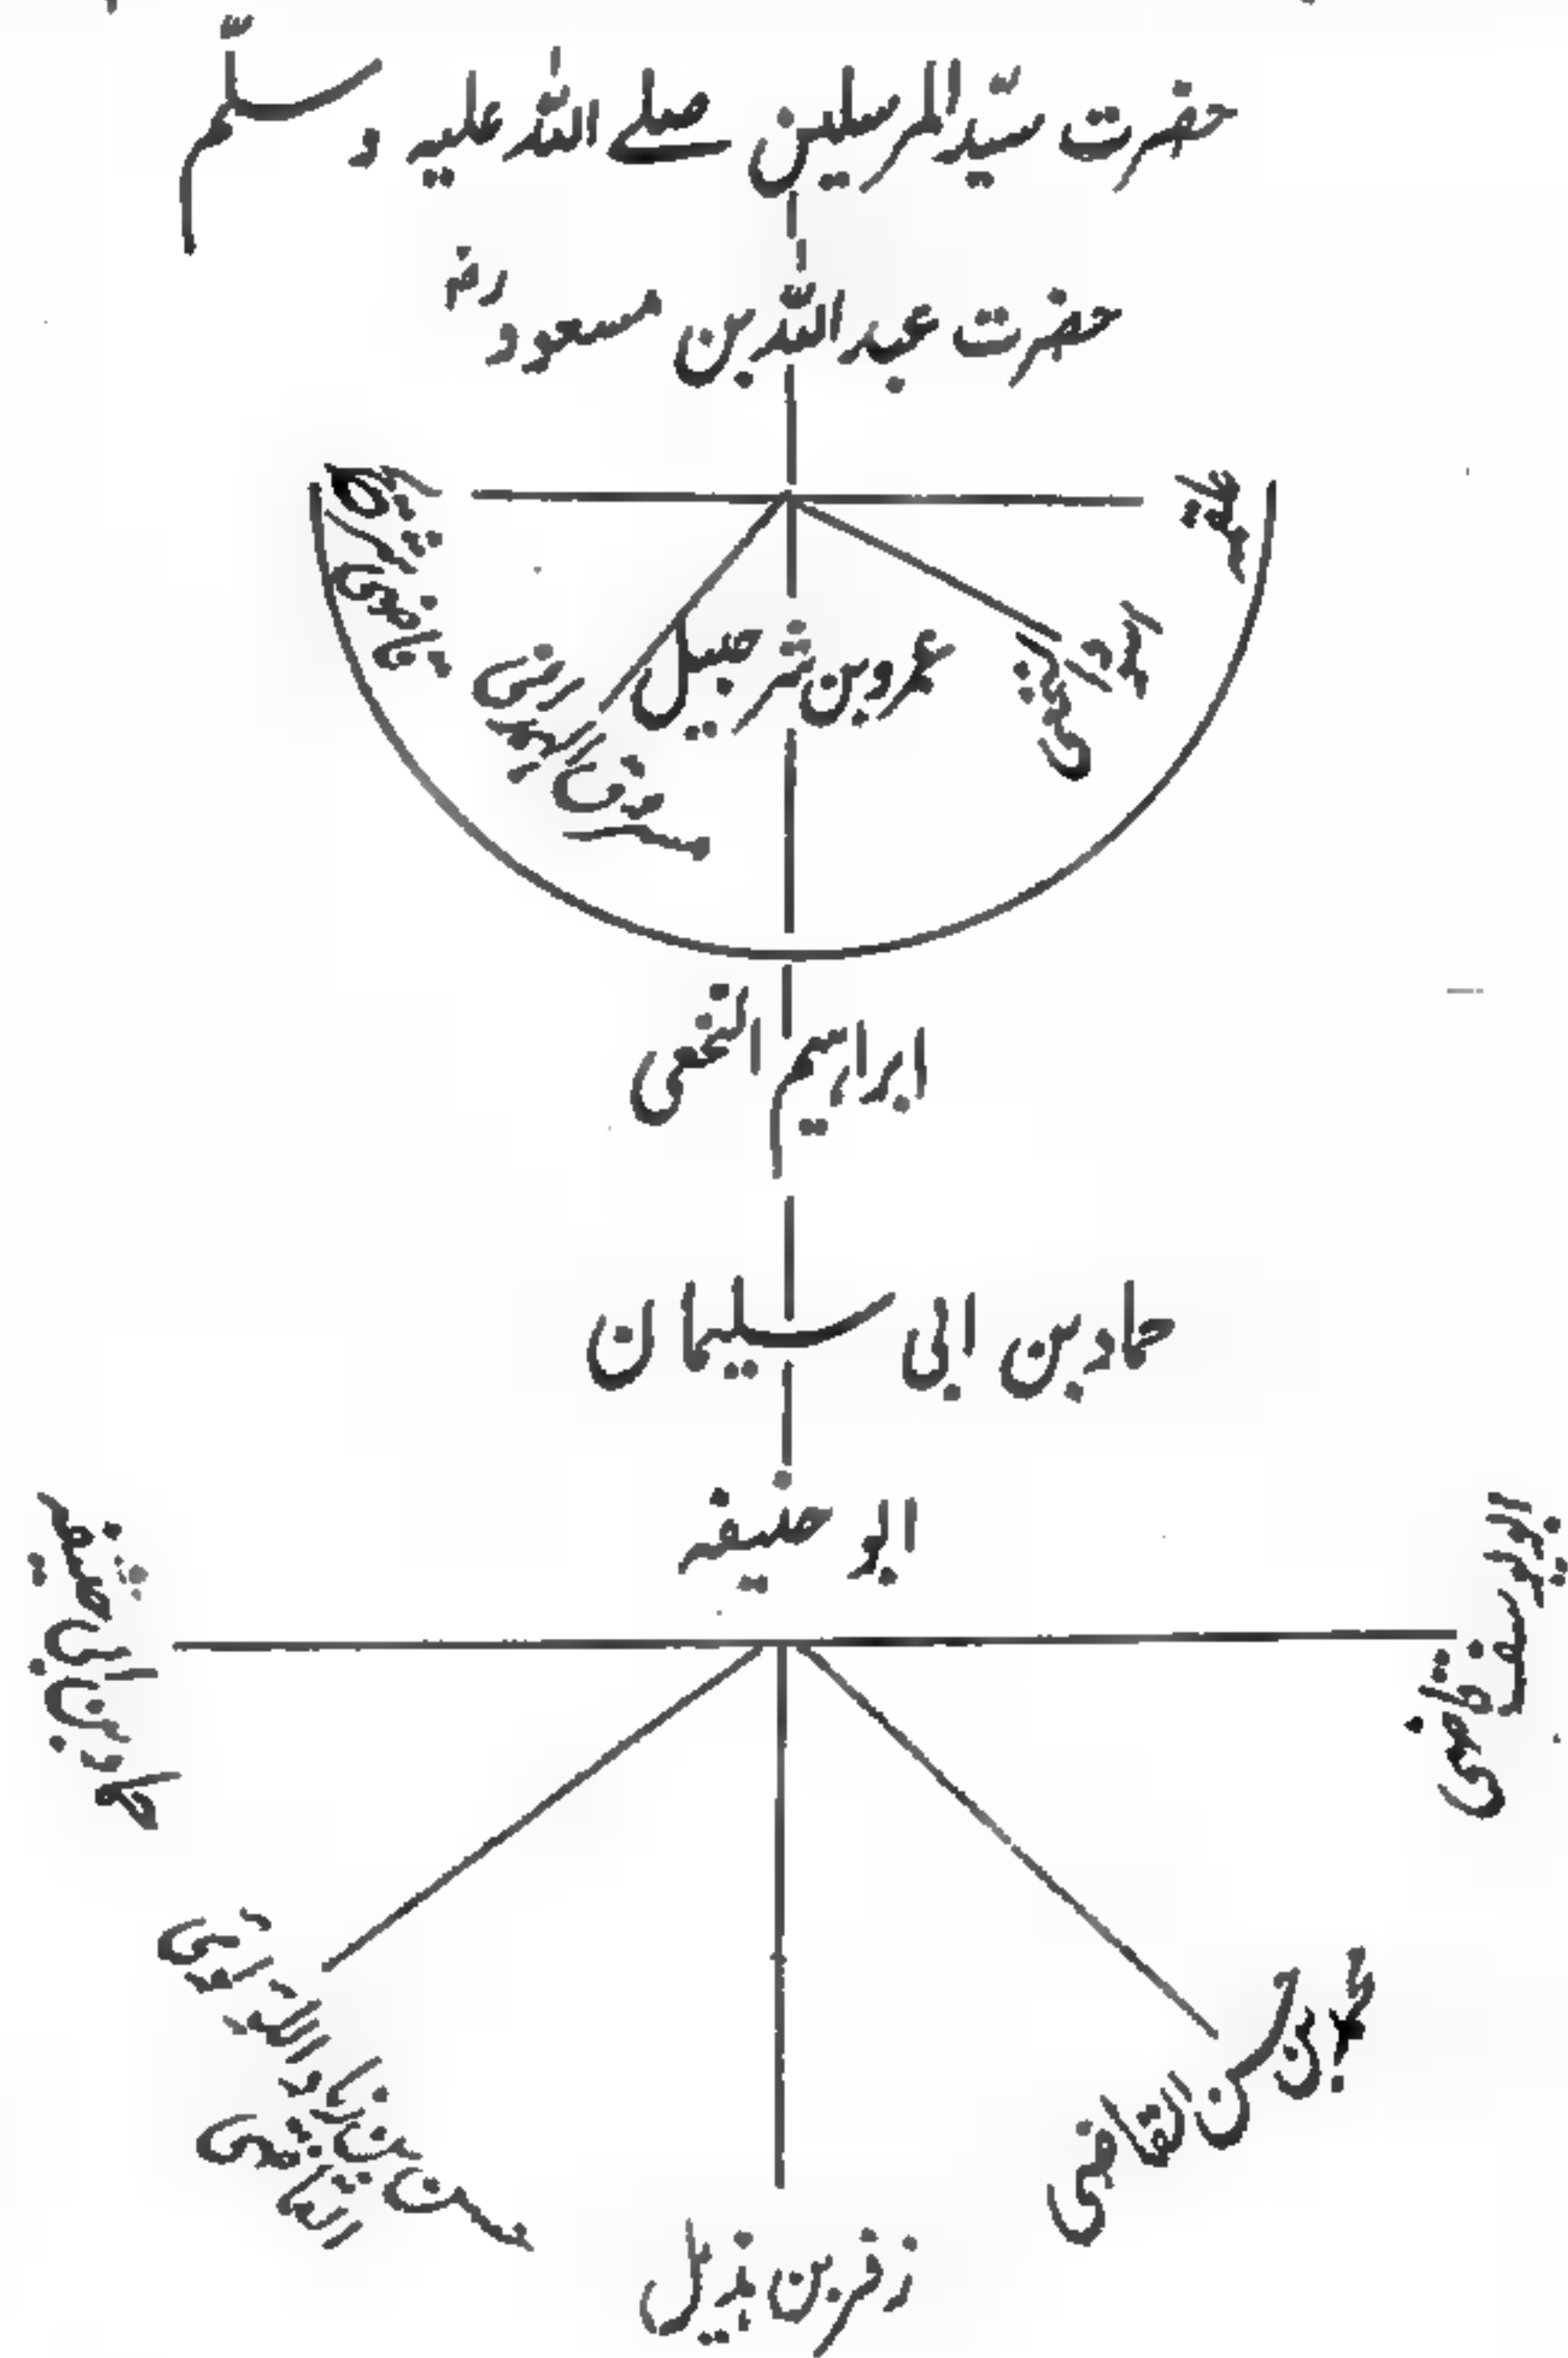 حضرت سیّد المرسلین صلے اللہ علیہ و سلّم
حضرت عبد اللہ بن مسعود رضؓ
علقمہ
اسود
نخعی
عمرو بن شرحبیل
مسروق الہمدانی
قاضی شریح
ابراہیم النخعی
حماد بن ابی سلیمان
ابو حنیفہ
ابو یوسف قاضی
محمد بن حسن القاضی
زفر بن ہذیل
حسن بن زیاد اللولوی
القاضی
حماد بن ابی حنیفہ